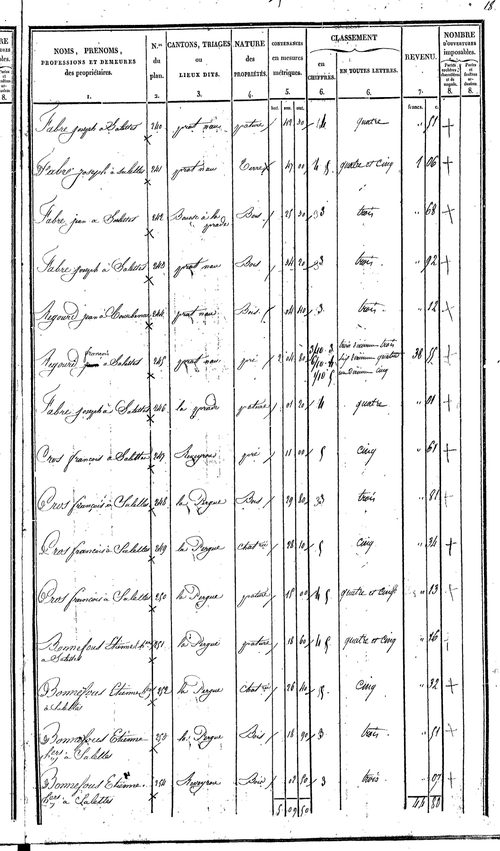 18.
NOMS, PRENOMS,
PROFESSIONS ET DEMEURES
des propriétaires.
1.
N.os
du
plan.
2.
CANTONS, TRIAGES
ou
LIEUX DITS.
3.
NATURE
des
PROPRIÉTÉS.
4.
CONTENANCES
en mesures
métriques.
5.
CLASSEMENT
en
CHIFFRES.
6.
EN TOUTES LETTRES.
6.
REVENU.
7.
NOMBRE
D'OUVERTURES
imposables.
8.
8.
francs. c.
Fabre joseph à Salettes 240 prat nau pature 42 30 4 quatre " 51
Fabre joseph à Salettes 241 prat nau Terre 47 00 4 5 quatre et cinq 1 06
Fabre jean à Salettes 242 à la prade Bois 25 30 3 trois " 68
Fabre joseph à Salettes 243 prat nau Bois 34 20 3 trois " 92
Regourd jean à 244 prat nau Bois 04 40 3 trois " 12
Regourd françois à Salettes 245 prat nau pré 2 04 80 3/10 3 trois dixièmes trois 38 55
6/10 4 six dixièmes quatre
1/10 5 un dixième cinq
Fabre joseph à Salettes 246 la prade pature 01 20 4 quatre " 01
Cros françois à Salettes 247 Aveyrou pré 11 00 5 cinq " 61
Cros françois à Salettes 248 la Pergue Bois 29 80 3 trois " 81
Cros françois à Salettes 249 la Pergue chat 28 10 5 cinq " 34
Cros françois à Salettes 250 la Pergue pature 15 00 4 5 quatre et cinq " 13
Bonnefous Etienne 251 la Pergue pature 18 60 4 5 quatre et cinq " 16
à Salettes
Bonnefous Etienne 252 la Pergue Chat 26 40 5 cinq " 32
à Salettes
Bonnefous Etienne 253 la Pergue Bois 18 90 3 trois " 51
à Salettes
Bonnefous Etienne 254 Aveyrou Bois 02 50 3 trois " 07
à Salettes
5 09 50 44 80